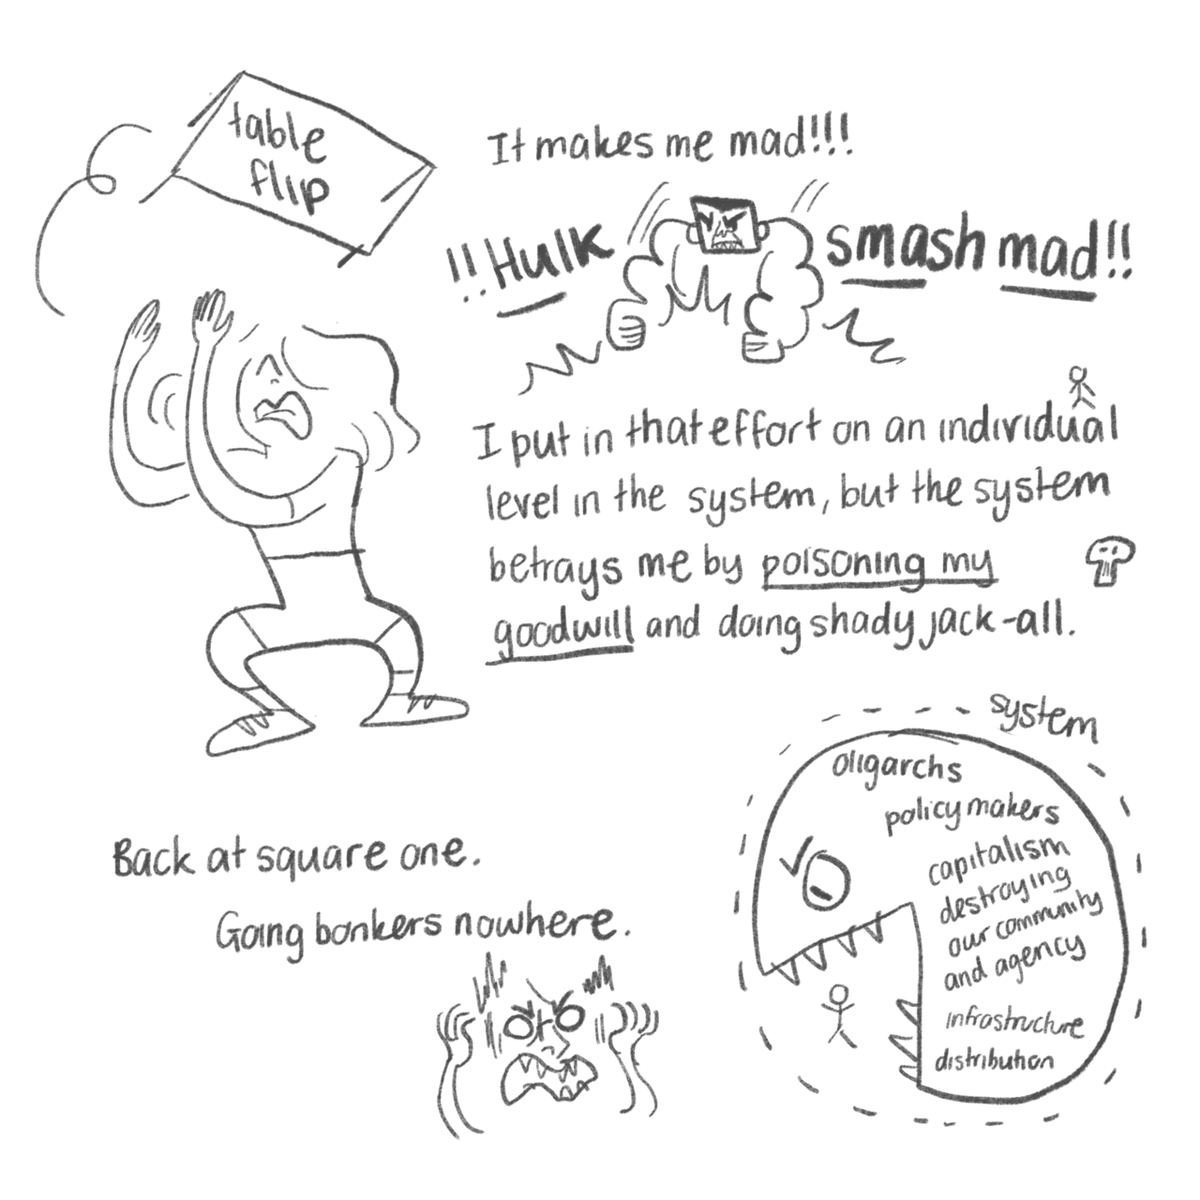 table
flip
It makes me mad!!!
!!Hulk smash mad!!
I put in that effort on an individual
level in the system, but the system
betrays me by poisoning my
goodwill and doing shady jack-all.
system
oligarchs
policy makers
capitalism
destroying
our community
and agency
infrastructure
distribution
Back at square one.
Going bonkers nowhere.